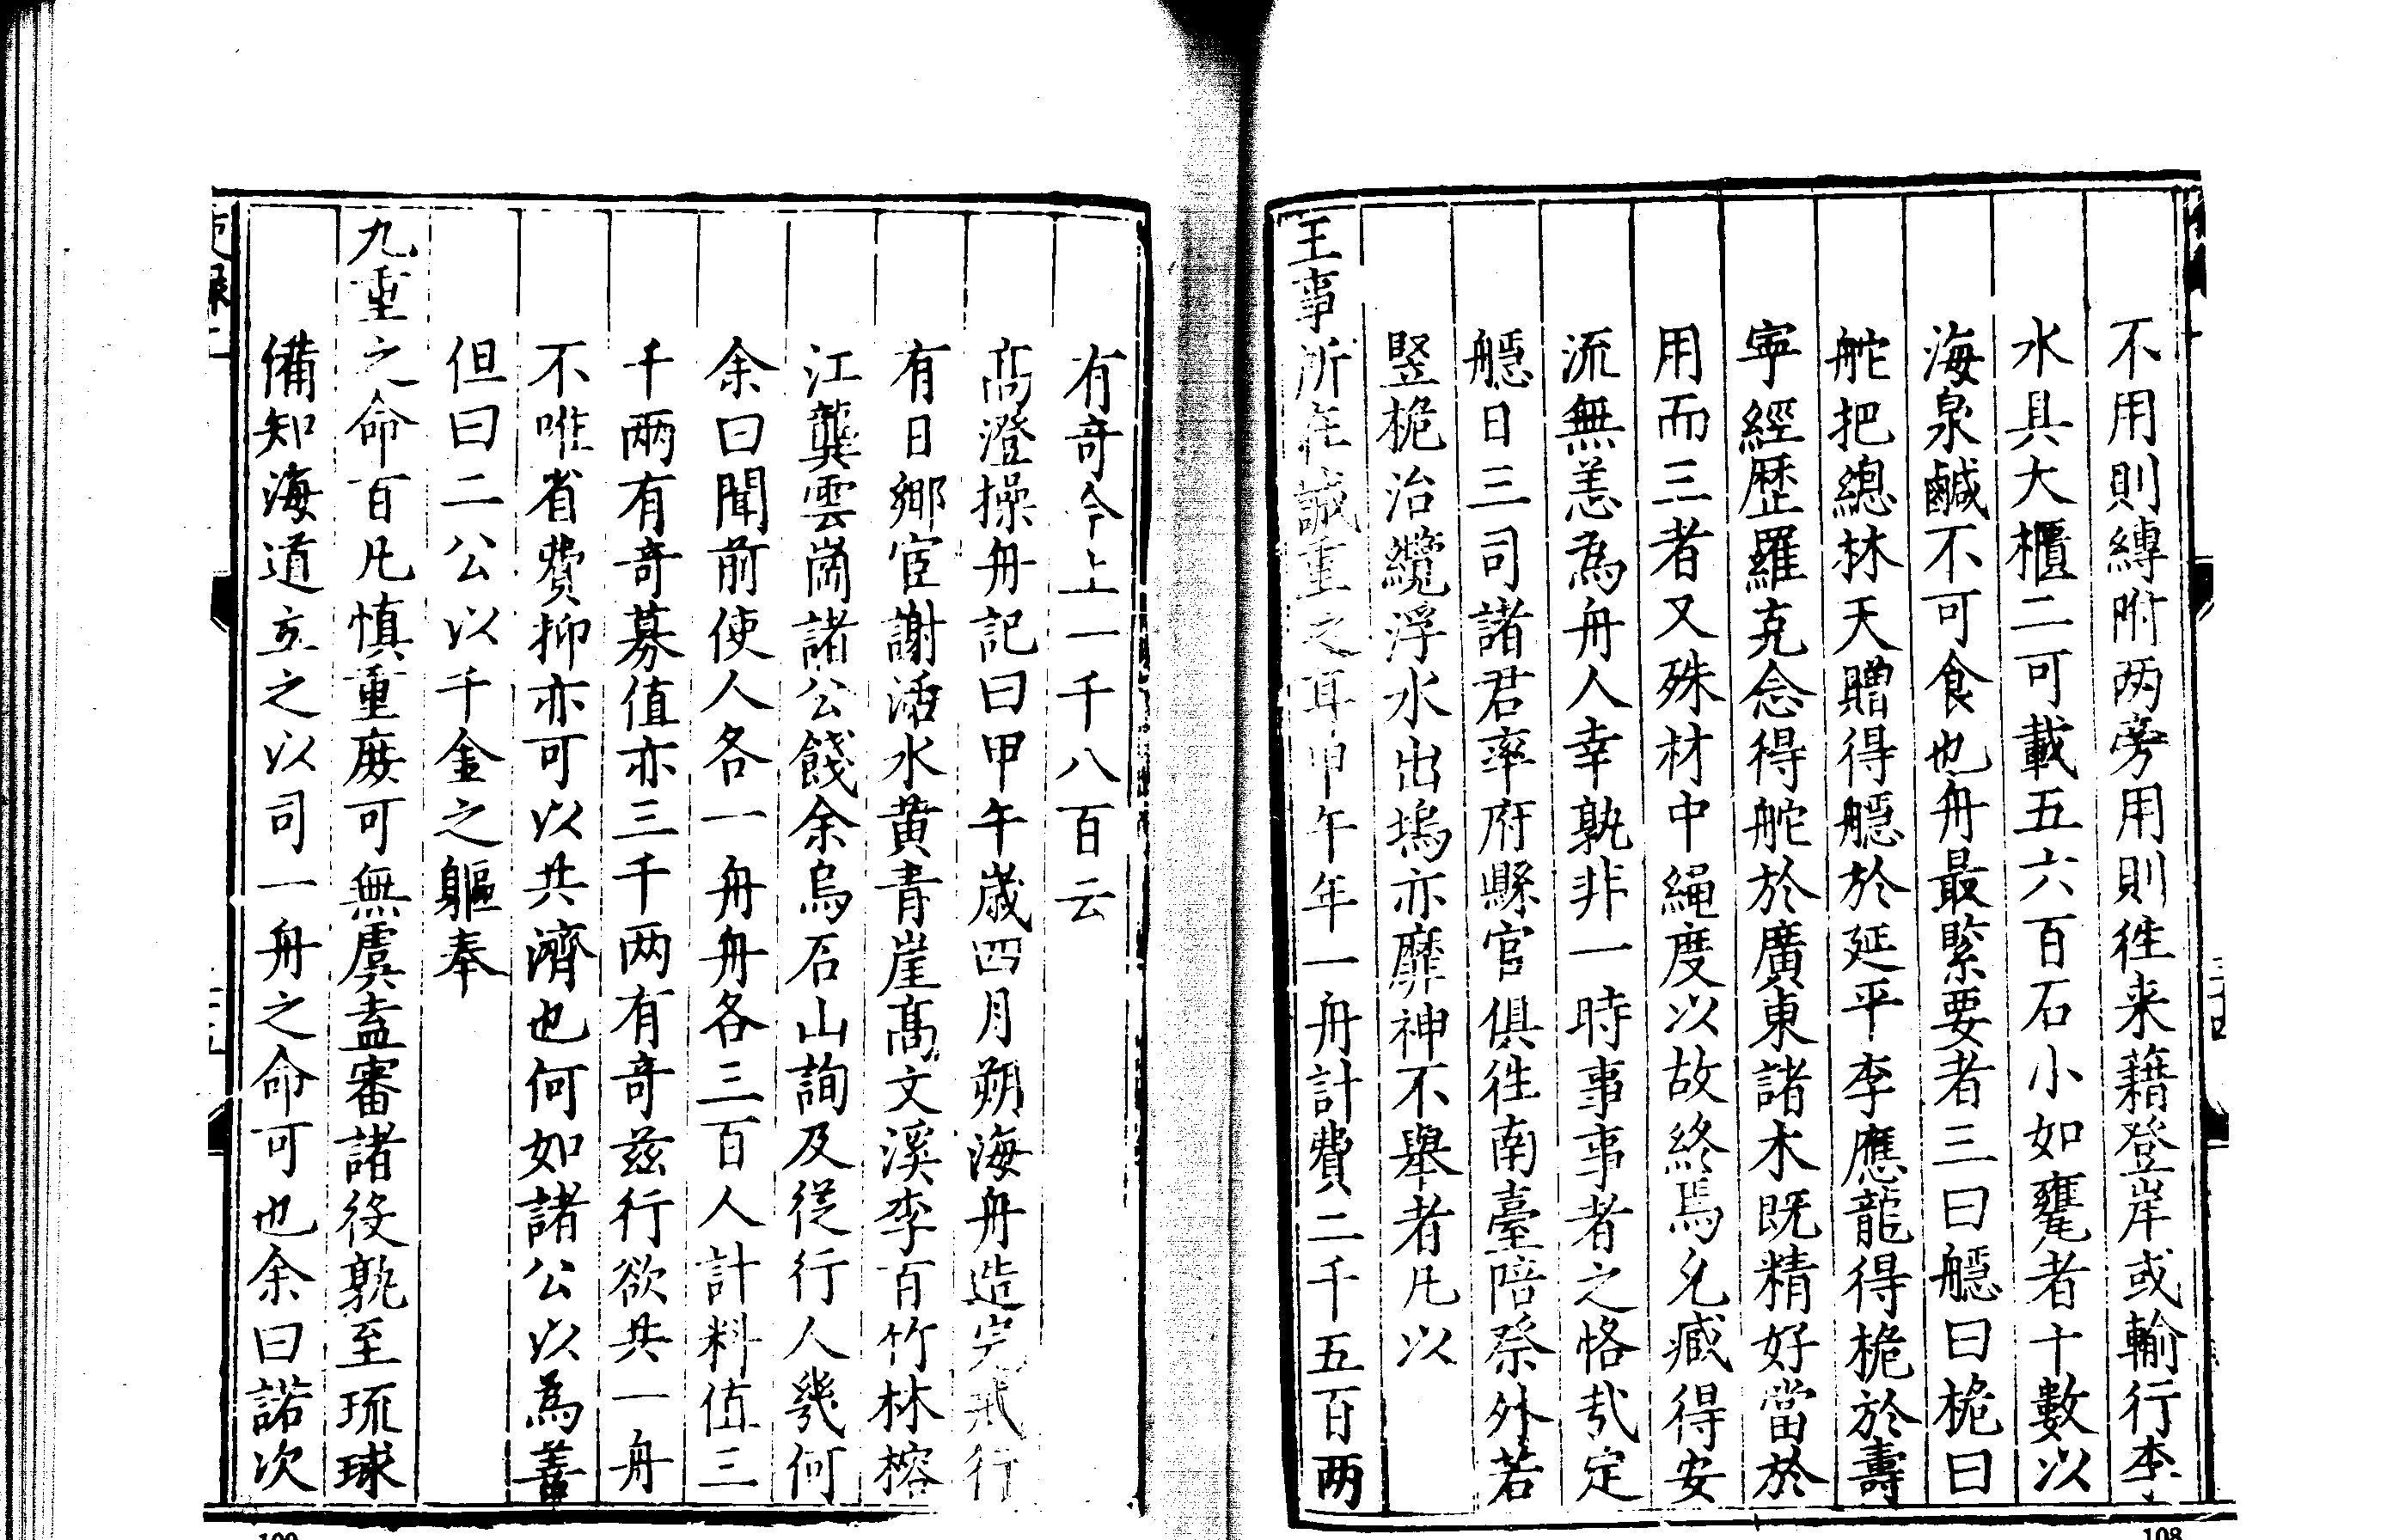 不用則縛附两旁用則徃来藉登岸或輸行李
水具大櫃二可載五六百石小如甕者十數以
海泉鹹不可食也舟最緊要者三曰艌曰桅曰
舵把總林天贈得艌於延平李應龍得桅於壽
寧經歷羅克念得舵於廣東諸木既精好當於
用而三者又殊材中繩度以故終焉允臧得安
流無恙為舟人幸孰非一時事事者之恪㢤定
艌日三司諸君率府縣官俱徃南臺陪祭外若
竪桅治纜浮水出塢亦靡神不舉者凡以
王事所在誠重之耳甲午年一舟計費二千五百两
有奇今上一千八百云
髙澄操舟記曰甲午歲四月朔海舟造完戒行
有日鄉宦謝㳓水黄青崖髙文溪李百竹林榕
江龔雲崗諸公餞余烏石山詢及從行人幾何
余曰聞前使人各一舟舟各三百人計料值三
千兩有奇募值亦三千两有奇兹行欲共一舟
不唯省費抑亦可以共濟也何如諸公以為善
但曰二公以千金之軀奉
九重之命百凡慎重庶可無虞盍審諸役孰至琉球
備知海道立之以司一舟之命可也余曰諾次
108
109